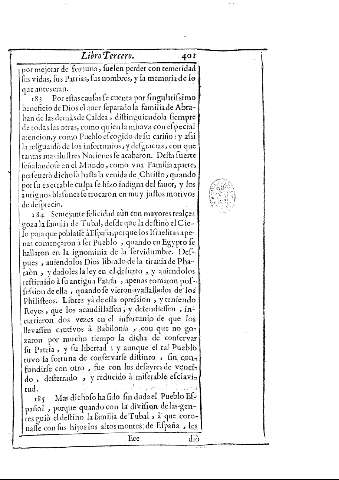 Libro Tercero. 401
por mejorar de fortuna, suelen perder con temeridad
sus vidas, sus Patrias, sus nombres, y la memoria de lo
que antes eran.
183 Por estas causas se cuenta por singularissimo
beneficio de Dios el aver separado la familia de Abra-
han de las demàs de Caldea, distinguiendola siempre
de todas las otras, como quien la mirava con especial
atencion, y como Pueblo escogido de su cariño; y assi
la resguardò de los infortunios, y desgracias, con que
tantas mas ilustres Naciones se acabaron. Desta suerte
señalandose en el Mundo, como una Familia aparte,
perseverò dichosa hasta la venida de Christo, quando
por su execrable culpa se hizo indigna del favor, y los
antiguos blasones se trocaron en muy justos motivos
de desprecio.
184 Semejante felicidad aùn con mayores realçes
goza la antigua familia de Tubal, desde que la destinò el Cie-
lo para que poblasse à España, porque los Israelitas ape-
nas començaron à ser Pueblo, quando en Egypto se
hallaron en la ignominia de la servidumbre. Des-
pues, aviendolos Dios librado de la tirania de Pha-
raòn, y dadoles la ley en el desierto, y aviendolos
restituido à su antigua Patria, apenas tomaron pos-
session de ella, quando se vieron avassallados de los
Philisteos. Libres yà de esta opression, y teniendo
Reyes, que los acaudillassen, y defendiessen, in-
currieron dos vezes en el infortunio de que los
llevassen cautivos à Babilonia, con que no go-
zaron por mucho tiempo la dicha de conservar
su Patria, y su libertad; y aunque el tal Pueblo
tuvo la fortuna de conservarse distinto, sin con-
fundirse con otro, fue con los desayres de venci-
do, desterrado, y reducido à miserable esclavi-
tud.
185 Mas dichoso ha sido sin duda el Pueblo Es-
pañol, porque quando con la division de las gen-
tes guiò el destino la familia de Tubal, à que coro-
nasse con sus hijos los altos montes de España, les
Eee diò